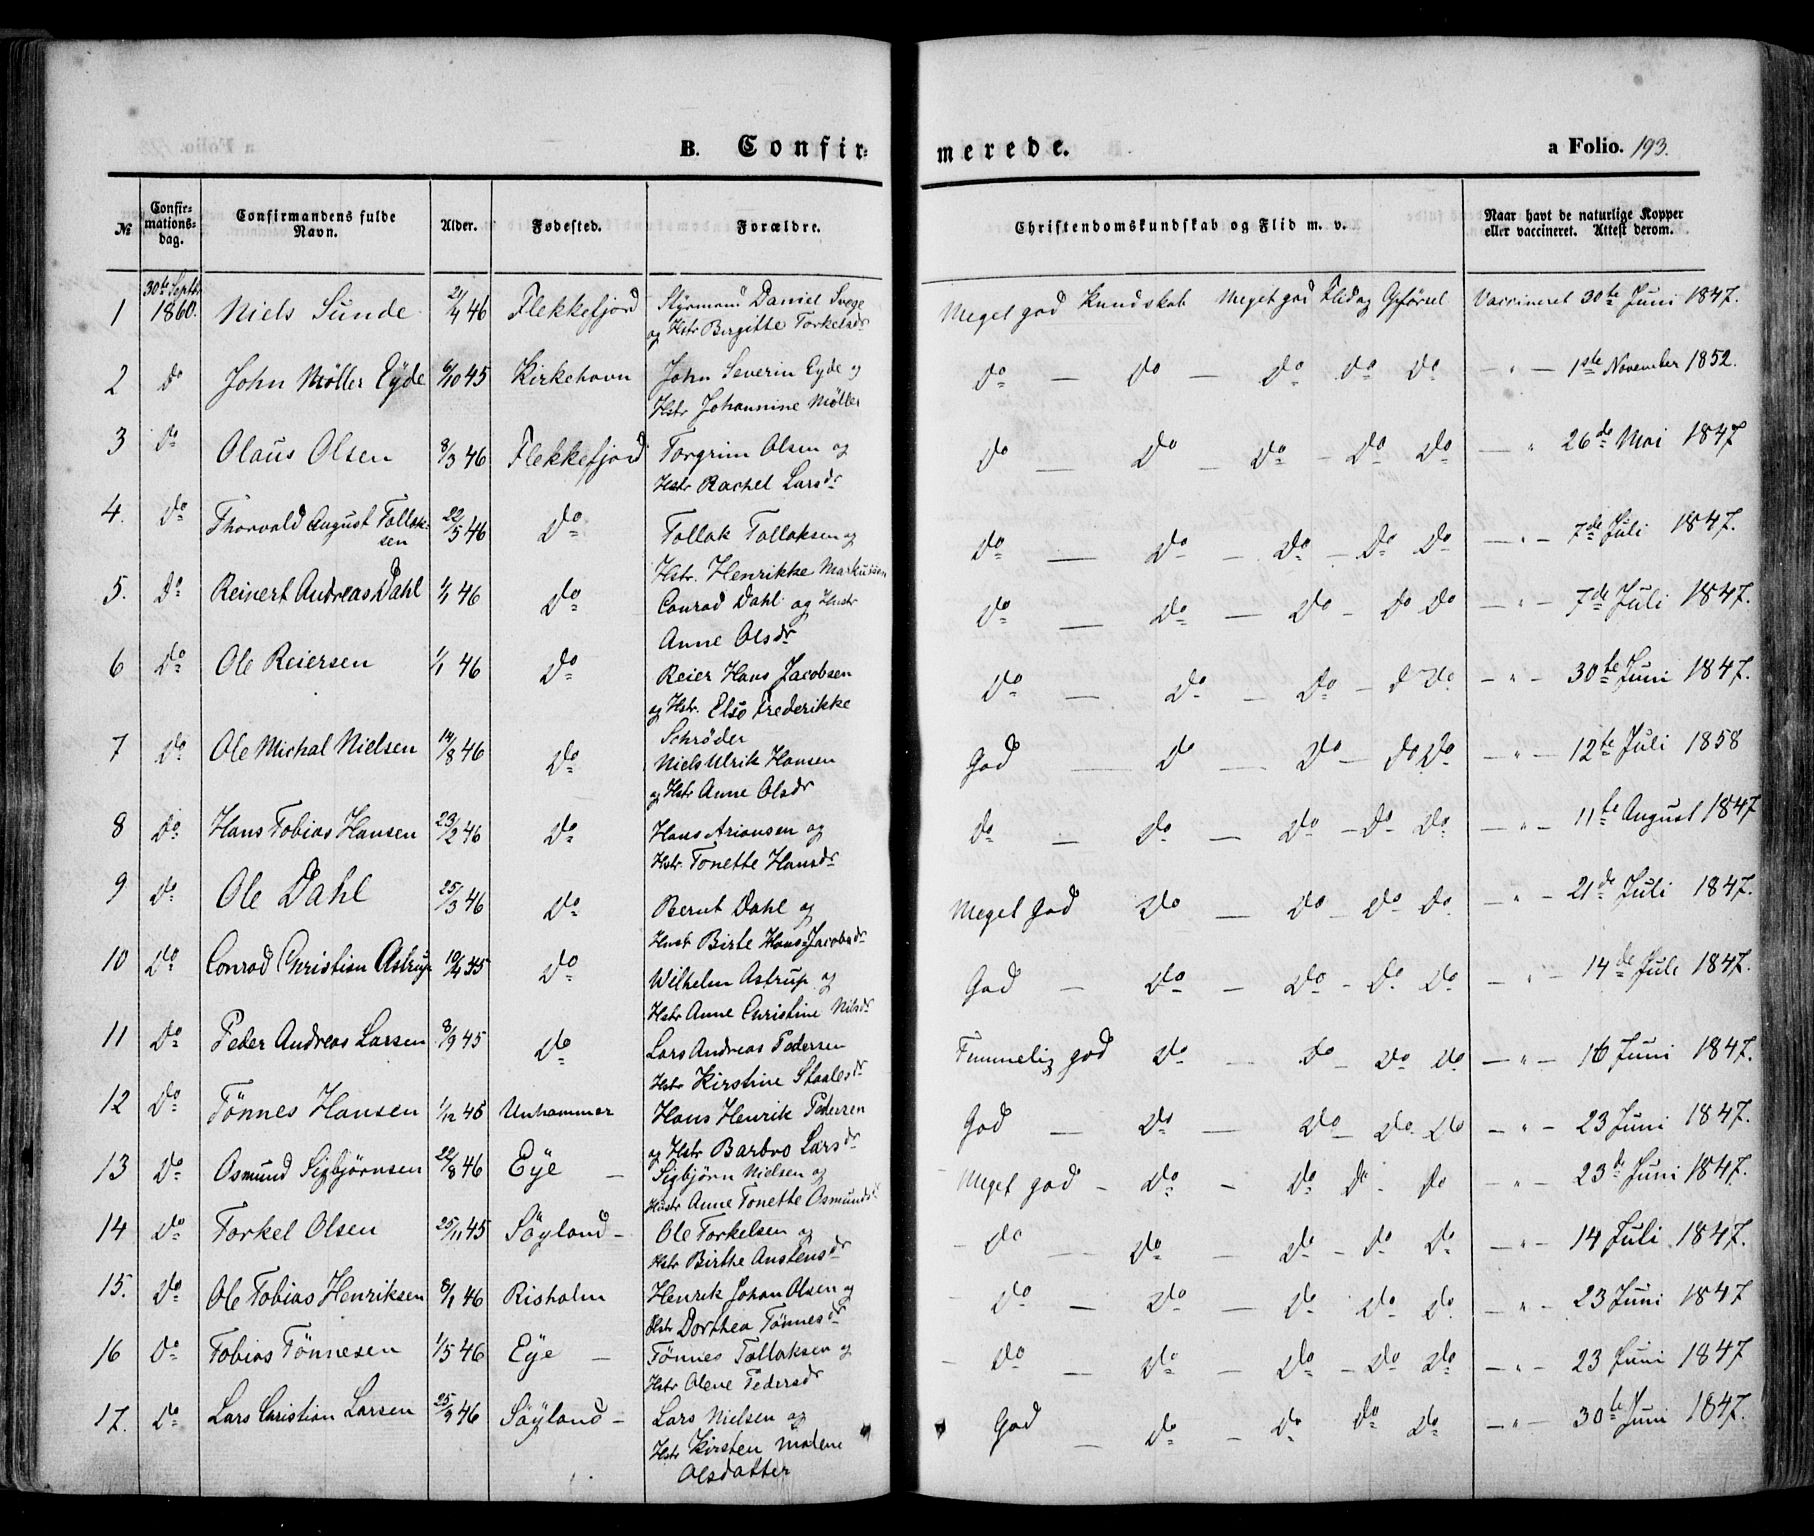 B. Confir-
merede.
a Folio. 193.
№ Confir-mations-dag. Confirmandens fulde Navn. Alder. Fødested. Forældre. Christendomskundskab og Flid m. v. Naar havt de naturlige Kopper eller vaccineret. Attest derom.
1 30te Septbr 1860. Niels Sunde 21/4 46 Flekkefjord Styrmand Daniel Svege Meget god Kundskab Meget god Flid og Opførsel Vaccineret 30te Juni 1847.
og Hstr Birgitte Torkelsdr
2 Do John Møller Eyde 6/10 45 Kirkehavn John Severin Eyde og Do — Do — Do Do Do — " — 1ste November 1852.
Hstr Johannine Møller
3 Do Olaus Olsen 8/3 46 Flekkefjord Torgrim Olsen og Do — Do — Do – Do Do — " 26de Mai 1847
Hstr Rachel Larsdr
4. Do Thorvald August Tollak-sen 22/5 46 Do Tollak Tollaksen og Do — Do — Do – Do Do — " — 7de Juli 1847.
Hstr. Henrikke Markussen
5. Do Reinert Andreas Dahl 1/1 46 Do Conrad Dahl og Hustr Do — Do — Do – Do Do — " — 7de Juli 1847.
Anne Olsdr
6 Do Ole Reiersen 1/1 46 Do Reier Hans Jacobsen Do — Do — Do – D Do — " — 30te Juni 1847.
og Hstr. Elso Frederikke
Schrøder
7 Do Ole Michal Nielsen 14/8 46 Do Niels Ulrik Hansen God — D — Do — Do Do — " — 12te Juli 1858
og Hstr Anne Olsdr
8 Do Hans Tobias Hansen 23/2 46 Do Hans Ariansen og Do — Do — Do – Do Do — " — 11te August 1847
Hstr. Tonette Hansdr
9 Do Ole Dahl 25/3 46 Do Bernt Dahl og Meget God Do — Do – Do Do — " — 21de Juli 1847.
Hustr Birte Hans Jacobsdr
10 Do Conrad Christian Astrup 10/4 45 Do Wilhelm Astrup og God — Do — Do – Do Do — " — 14de Juli 1847.
Hstr Anne Christine Nilsdr
11 Do Peder Andreas Larsen 8/9 45 Do Lars Andreas Pedersen Temmelig god Do — Do – Do Do — " — 16 Juni 1847.
Hstr Kirstine Staalesdr
12 Do Tønnes Hansen 1/12 45 Unhammer Hans Henrik Pedersen God — Do — Do – Do Do — " — 23 Juni 1847.
og Hstr Barbro Larsdr
13 Do Osmund Sigbjørnsen 22/8 46 Eye — Sigbjørn Nielsen og Meget god – Do – Do Do – Do — " — 23de Juni 1847.
Hustr Anne Tonette Osmundsd
14 Do Torkel Olsen 25/11 45 Söyland – Ole Torkelsen og – Do — Do — Do – Do Do — " — 14 Juli 1847.
Hstr Birthe Anstensdr
15. Do Ole Tobias Henriksen 8/1 46 Risholm Henrik Johan Olsen og – Do — Do — Do Do Do — " — 23 Juni 1847
Hstr Dorthea Tønnesdr
16 Do Tobias Tönnesen 1/5 46 Eye — Tönnes Tollaksen og – Do — Do — Do – Do Do — " — 23 Juni 1847
Hstr Olene Pedersdr
17. Do Lars Christian Larsen 25/3 46 Söyland – Lars Nielsen og God — Do — Do Do Do — " — 30te Juni 1847.
Hstr Kirsten Malene
Olsdatter